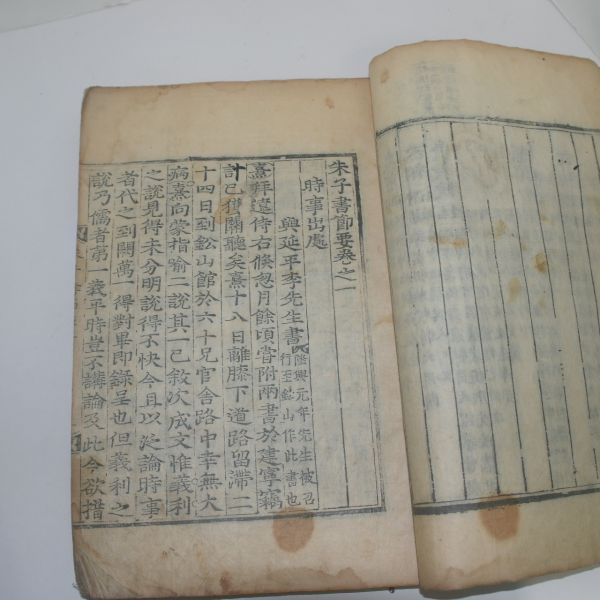 朱子書節要卷之一
時事出處
與延平李先生書 隆興元年先生被召
行至鉛山作此書也
熹拜違侍右倐忽月餘頃嘗附兩書於建寧竊
計已獲關聽矣熹十八日離膝下道路留滯二
十四日到鈆山館於六十兄官舍路中幸無大
病熹向蒙指喻二說其一已叙次成文惟義利
之說見得未分明說得不快今且以泛論時事
者代之到闕萬一得對畢即錄呈也但義利之
說乃儒者第一義平時豈不講論及此今欲措